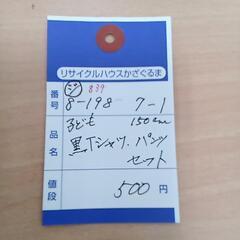 リサイクルハウスかざぐるま
ジ 839
番号 8-198 7-1
子ども 150cm
品名 黒Tシャツ、パンツ
セット
値段 500円